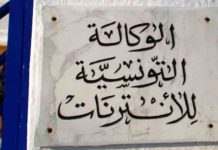 الوكالة
التونسيّة
للأنترنات